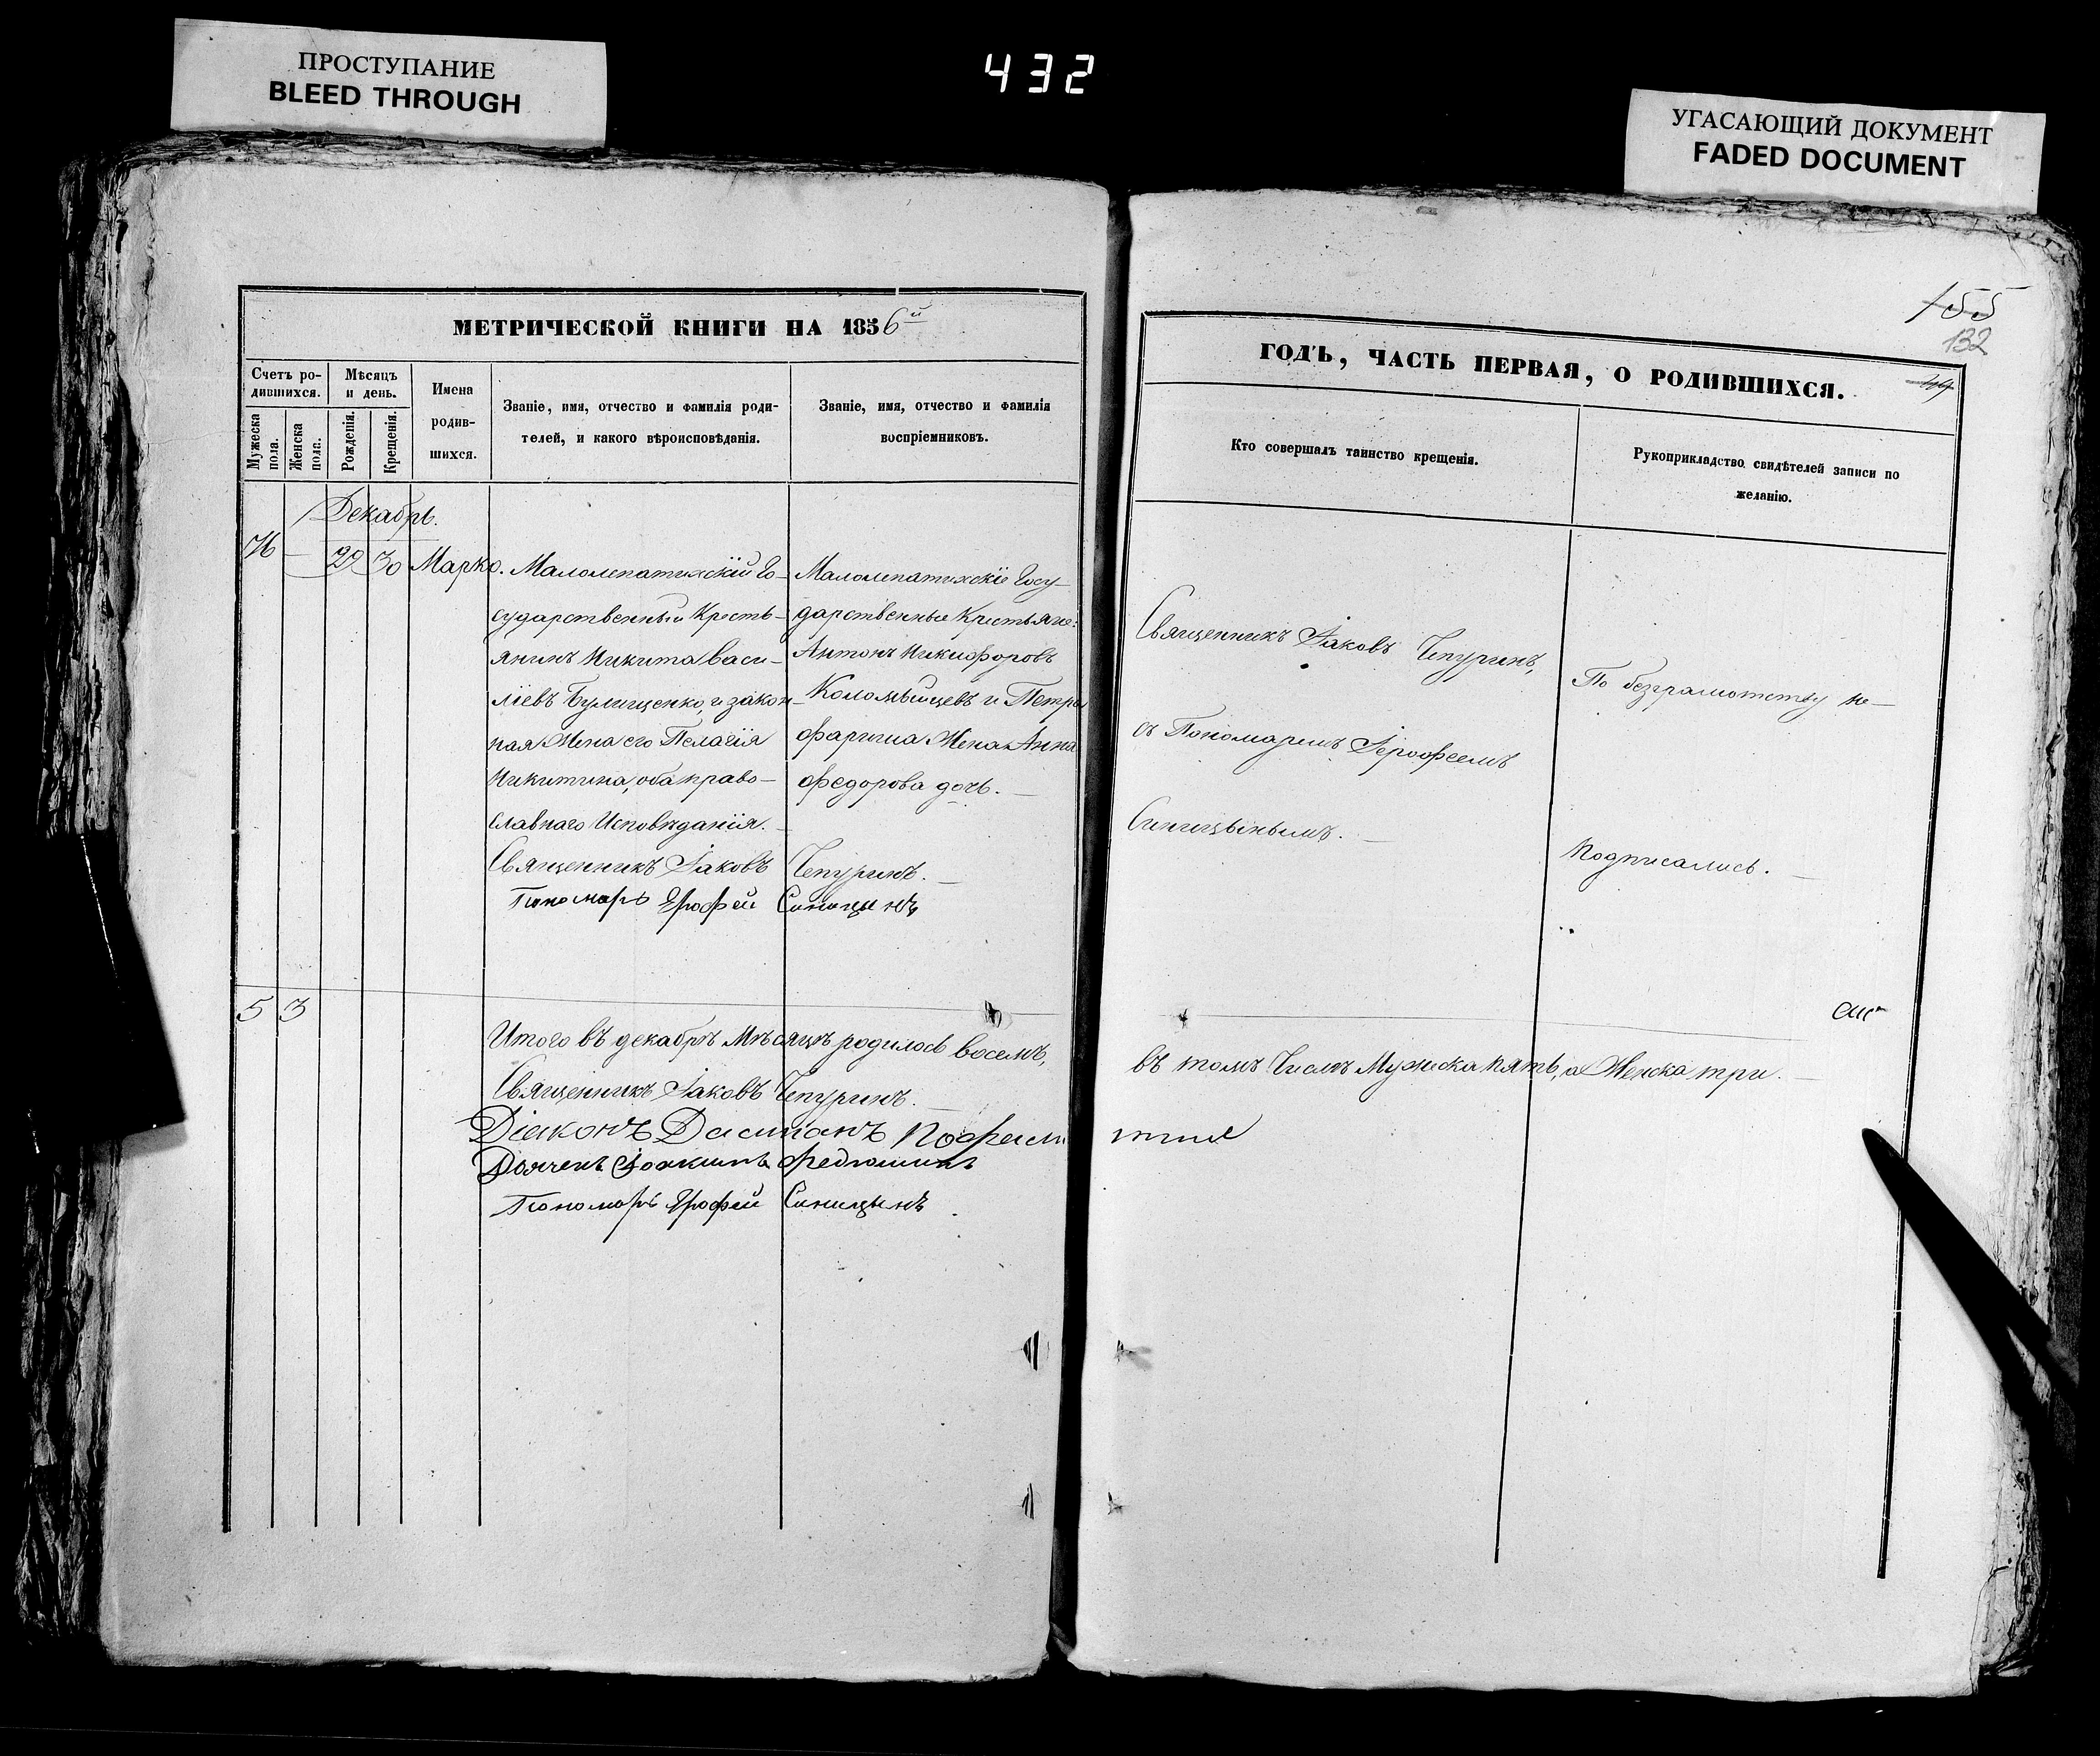 ПРОСТУПАНИЕ
BLEED THROUGH
432
УГАСАЮЩИЙ ДОКУМЕНТ
FADED DOCUMENT
МЕТРИЧЕСКОЙ КНИГИ НА 1856й
Счетъ ро-
дившихся.
Мужеска
пола.
Женска
пола.
Мѣсяцъ
и день.
Рожденія.
Крещенія.
Имена
родив-
шихся.
Званіе, имя, отчество и фамилія роди-
телей, и какого вѣроисповѣданія.
Званіе, имя, отчество и фамилія
воспріемниковъ.
Декабрь.
76 29 30 Марко.
Малолепатихскій Го-
сударственный Кресть-
янинъ Никита Васи-
ліевъ Булищенко, и закон-
ная Жена его Пелагія
Никитина, оба право-
славнаго Исповѣданія.
Малолепатихскіе Госу-
дарственные Крестьяне:
Антонъ Никифоровъ
Коломыйцевъ и Петра
Жена Анна
Федорова дочь.
Священникъ Іаковъ Чепуринъ.
Пономарь Ерофей Синицынъ
5 3
Итого въ декабрѣ Мѣсяцѣ родилось восемь,
Священникъ Іаковъ Чепуринъ.
Діаконъ Даміанъ
Дьячекъ Іоакимъ Федюшинъ
Пономарь Ерофей Синицынъ
155
132
ГОДЪ, ЧАСТЬ ПЕРВАЯ, О РОДИВШИХСЯ.
Кто совершалъ таинство крещенія.
Рукоприкладство свидѣтелей записи по
желанію.
Священникъ Іаковъ Чепуринъ,
съ Пономаремъ Іерофеемъ
Синицынымъ.
По безграмотству не-
подписались.
въ томъ Числѣ Мужеска пять, а Женска три.